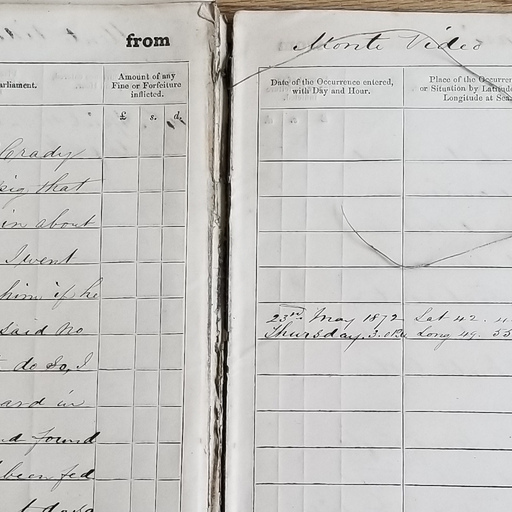 from
arliament.
Amount of any
Fine or Forfeiture
inflicted.
£ s. d.
Crady
pig that
in about
I went
him if he
said No
do So, I
ard in
nd found
been fed
Monte Video
Date of the Occurrence entered,
with Day and Hour.
Place of the Occurren
or Situation by Latitude
Longitude at Sea.
23rd May 1872 Lat 42. 4
Thursday. 3. Long 49. 55